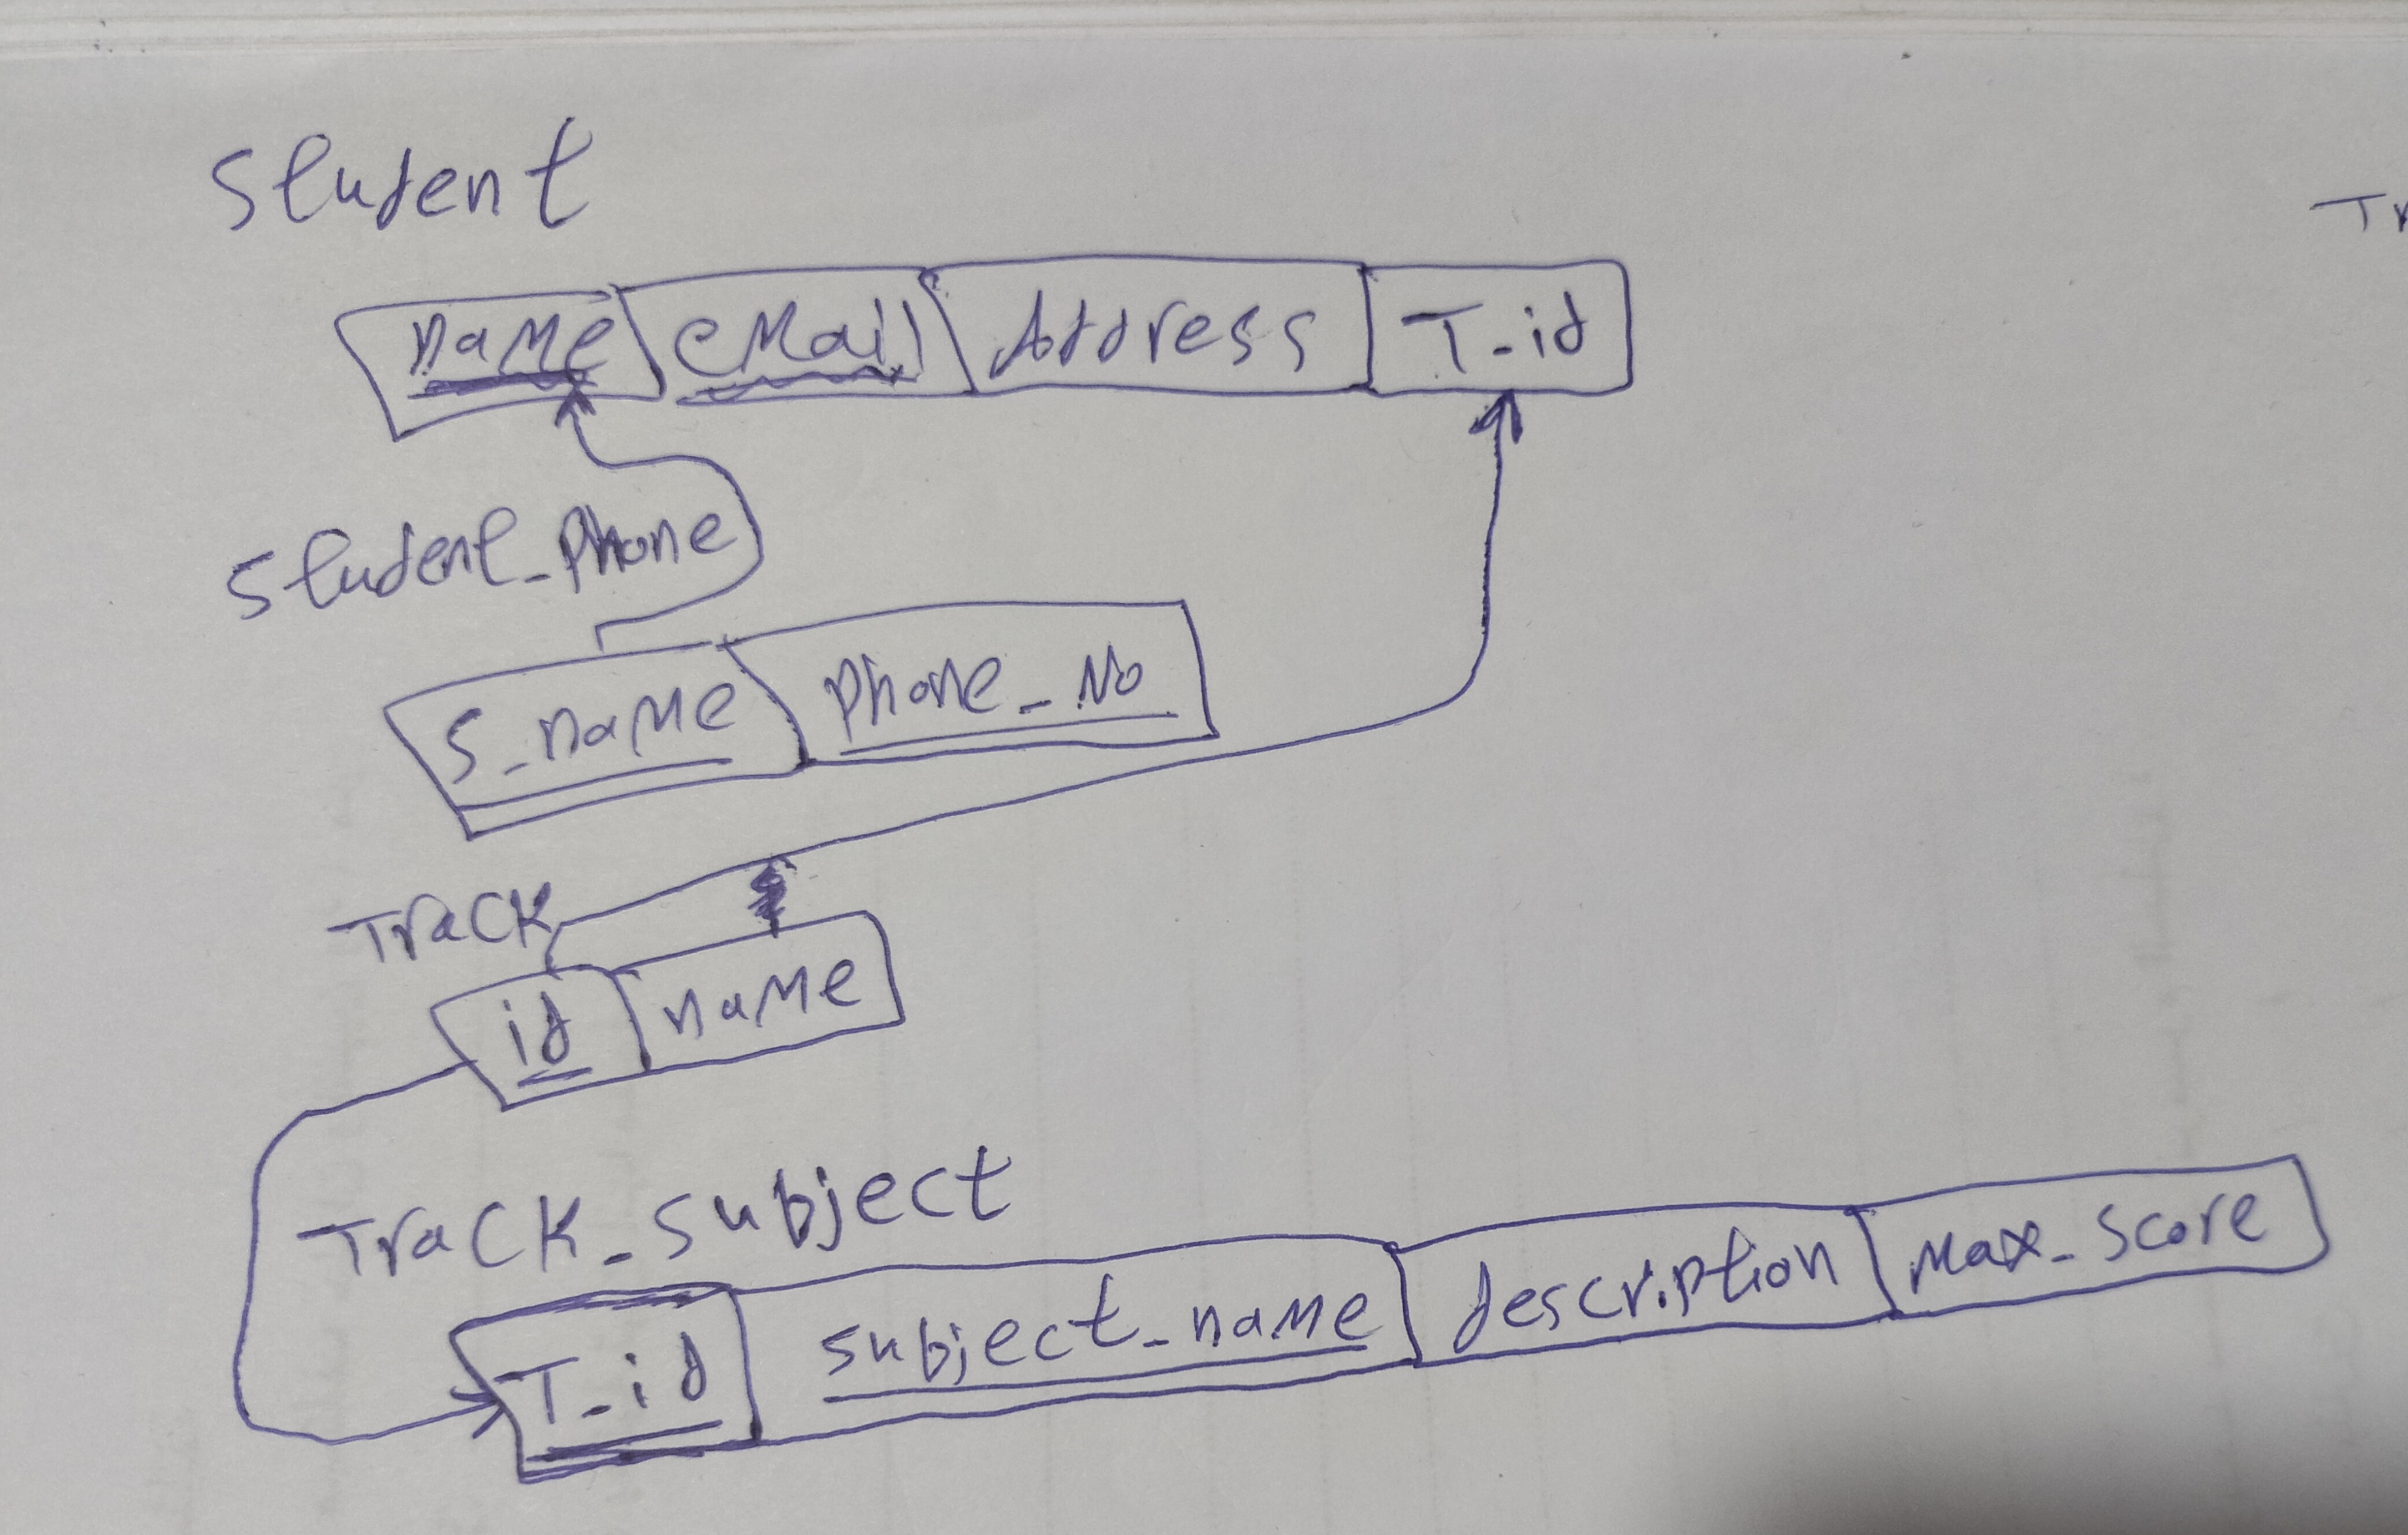 Student
Tr
name eMail Address T_id
Student_Phone
S_name Phone_No
Track
id name
Track_subject
T_id subject_name description Max_score